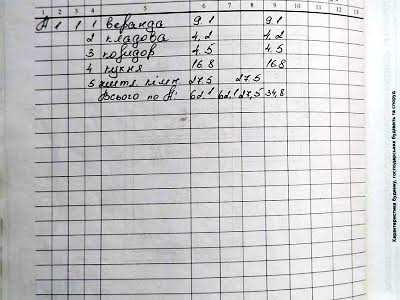 1 2 3 4 5 6 7 8 9 10 11 12 13
А 1 1 1 веранда 9.1 9.1
2 кладова 4,2 4,2
3 коридор 4.5 4.5
4 кухня 16.8 16.8
5 житл. кімн. 27.5 27.5
Всього по А: 62.1 62,1 27,5 34,8
Характеристика будинку, господарських будівель та споруд